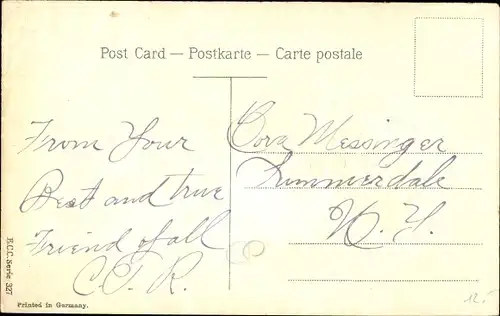 Post Card — Postkarte — Carte postale
From Your
Best and true
Friend of all
C. T. R.
Cora Messinger
Summerdale
N. Y.
E.C.C. Serie 327
Printed in Germany.
12.-